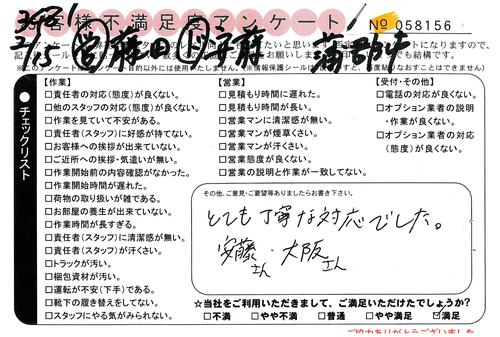 お客様不満足度アンケート
No 058156
2/15
【作業】
□責任者の対応(態度)が良くない。
□他のスタッフの対応(態度)が良くない。
□作業を見ていて不安がある。
□責任者(スタッフ)に好感が持てない。
□お客様への挨拶が出来ていない。
□ご近所への挨拶・気遣いが無い。
□作業開始前の内容確認がなかった。
□作業開始時間が遅れた。
□荷物の取り扱いが雑である。
□お部屋の養生が出来ていない。
□作業時間が長すぎる。
□責任者(スタッフ)に清潔感が無い。
□責任者(スタッフ)が汗くさい。
□トラックが汚い。
□梱包資材が汚い。
□運転が不安(下手)である。
□靴下の履き替えをしてない。
□スタッフにやる気がみられない。
【営業】
□見積もり時間に遅れた。
□見積もり時間が長い。
□営業マンに清潔感が無い。
□営業マンが煙草くさい。
□営業マンが汗くさい。
□営業態度が良くない。
□営業の説明と作業が一致してない。
【受付・その他】
□電話の対応が良くない。
□オプション業者の説明
・作業が良くない。
□オプション業者の対応
(態度)が良くない。
●チェックリスト
その他、ご意見・ご要望等ありましたらお書き下さい。
とても丁寧な対応でした。
安藤さん・大阪さん
☆当社をご利用いただきまして、ご満足いただけたでしょうか?
□不満 □やや不満 □普通 □やや満足 ☑満足
ご協力ありがとうございました